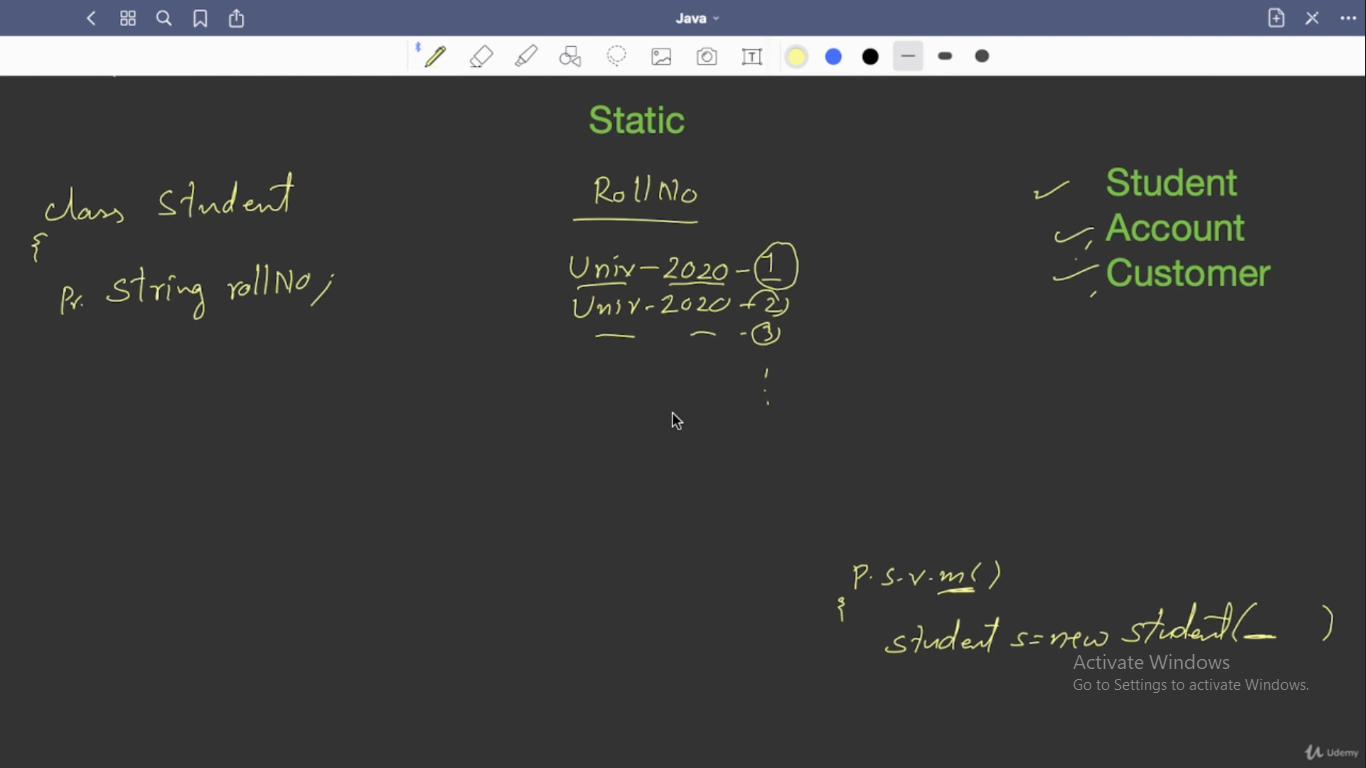 Java
Static
class Student
{
Pr. String rollNo;
RollNo
Univ-2020-1
Univ-2020-2
-3
Student
Account
Customer
P.s.v.m()
{
student s=new student( )
Activate Windows
Go to Settings to activate Windows.
Udemy